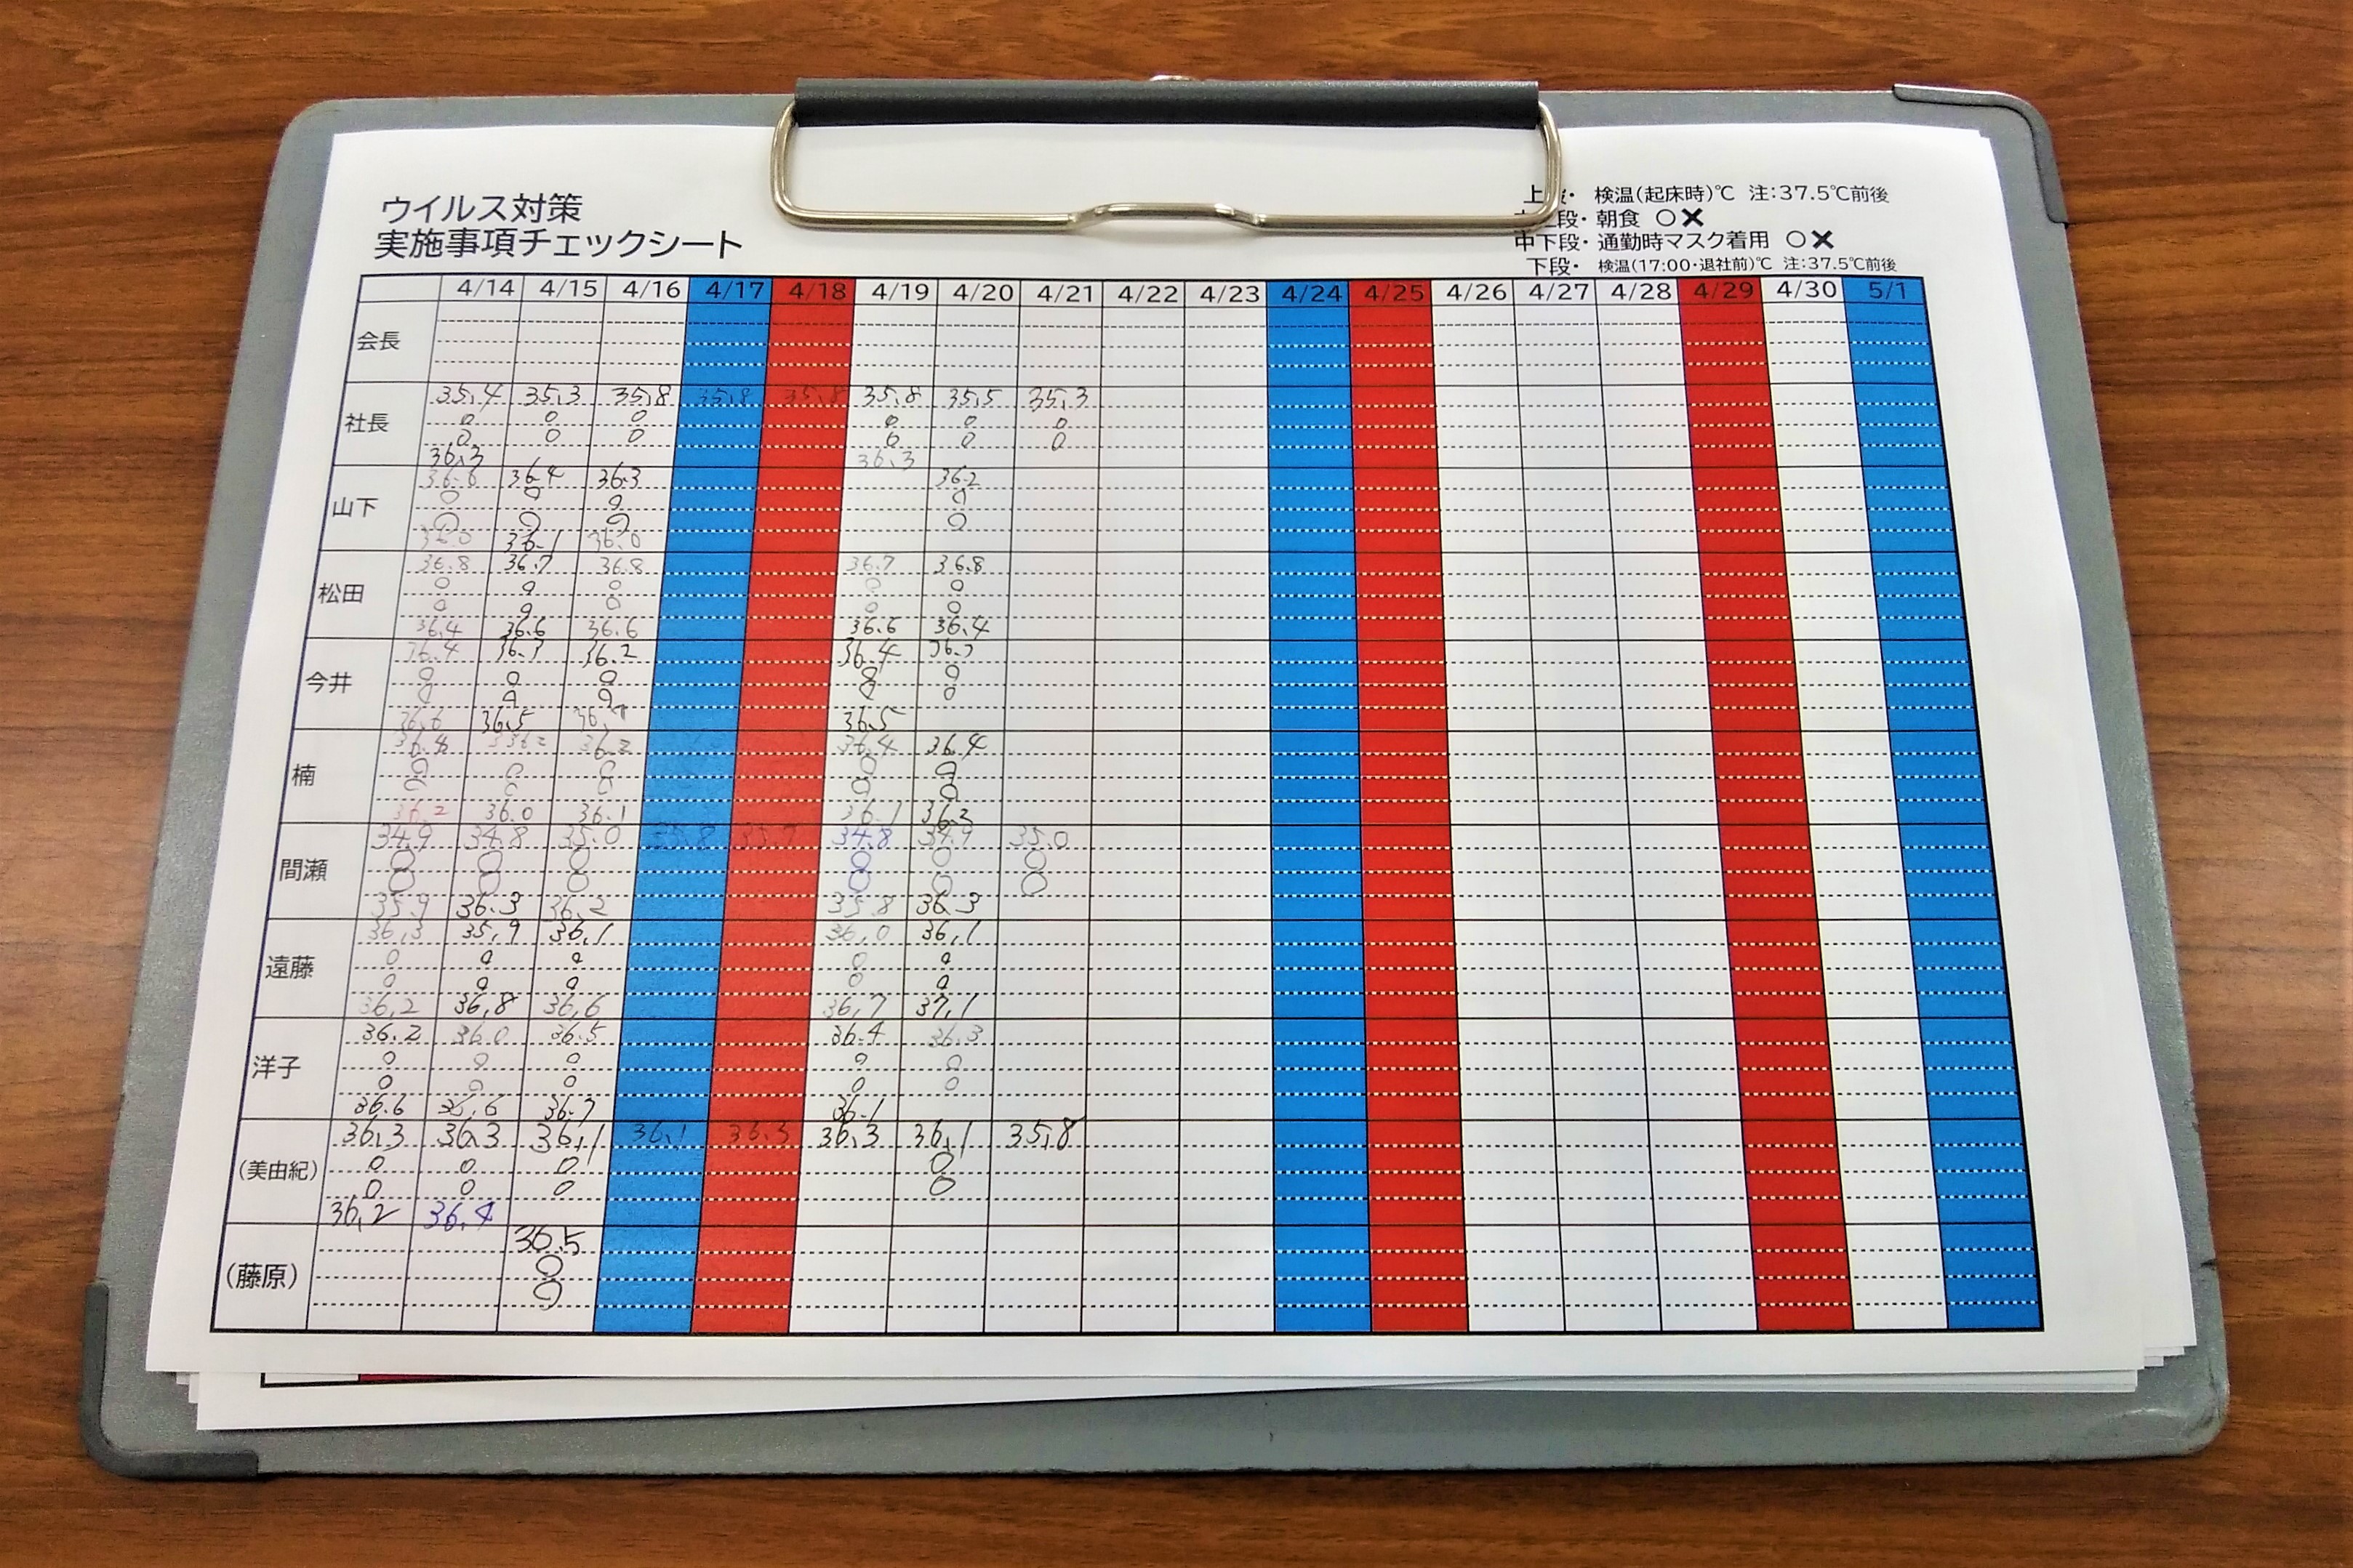 ウイルス対策
実施事項チェックシート
検温(起床時)℃ 注:37.5℃前後
段・ 朝食 ○✖
中下段・ 通勤時マスク着用 ○✖
下段・ 検温(17:00・退社前)℃ 注:37.5℃前後
4/14 4/15 4/16 4/17 4/18 4/19 4/20 4/21 4/22 4/23 4/24 4/25 4/26 4/27 4/28 4/29 4/30 5/1
会長
社長 35.4 35.3 35.8 35.8 35.8 35.8 35.5 35.3
○ ○ ○ ○ ○ ○
○ ○ ○ ○ ○ ○
36.3 36.3
山下 36.6 36.4 36.3 36.2
○ ○ ○ ○
○ ○ ○ ○
36.1 36.0
松田 36.8 36.7 36.8 36.7 36.8
○ ○ ○ ○ ○
○ ○ ○ ○ ○
36.4 36.6 36.6 36.6 36.4
今井 36.4 36.2 36.4
○ ○ ○ ○ ○
○ ○ ○ ○ ○
36.6 36.5 36.5
楠 36.2 36.4 36.4
○ ○ ○ ○ ○
○ ○ ○ ○ ○
36.2 36.0 36.1 36.1 36.2
間瀬 34.9 34.8 35.0 35.8 34.8 34.9 35.0
○ ○ ○ ○ ○ ○
○ ○ ○ ○ ○ ○
35.9 36.3 36.2 35.8 36.3
遠藤 36.3 35.9 36.1 36.0 36.1
○ ○ ○ ○ ○
○ ○ ○ ○ ○
36.2 36.8 36.6 36.7 37.1
洋子 36.2 36.0 36.5 36.4 36.3
○ ○ ○ ○ ○
○ ○ ○ ○ ○
36.6 36.6 36.7 36.1
(美由紀) 36.3 36.3 36.1 36.1 36.3 36.3 36.1 35.8
○ ○ ○ ○
○ ○ ○ ○
36.2 36.4
(藤原) 36.5
○
○